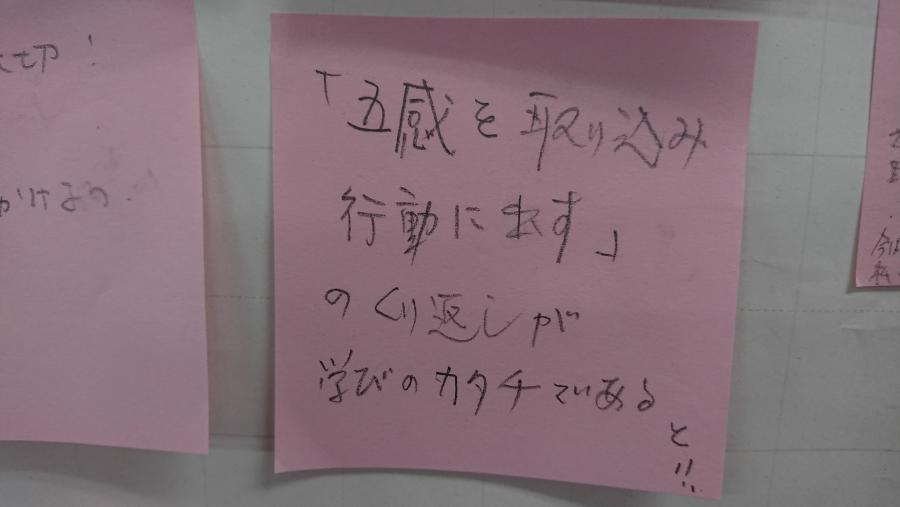 大切!
かけよう.
「五感を取り込み
行動に出す」
のくり返しが
学びのカタチである
と!!
今
私